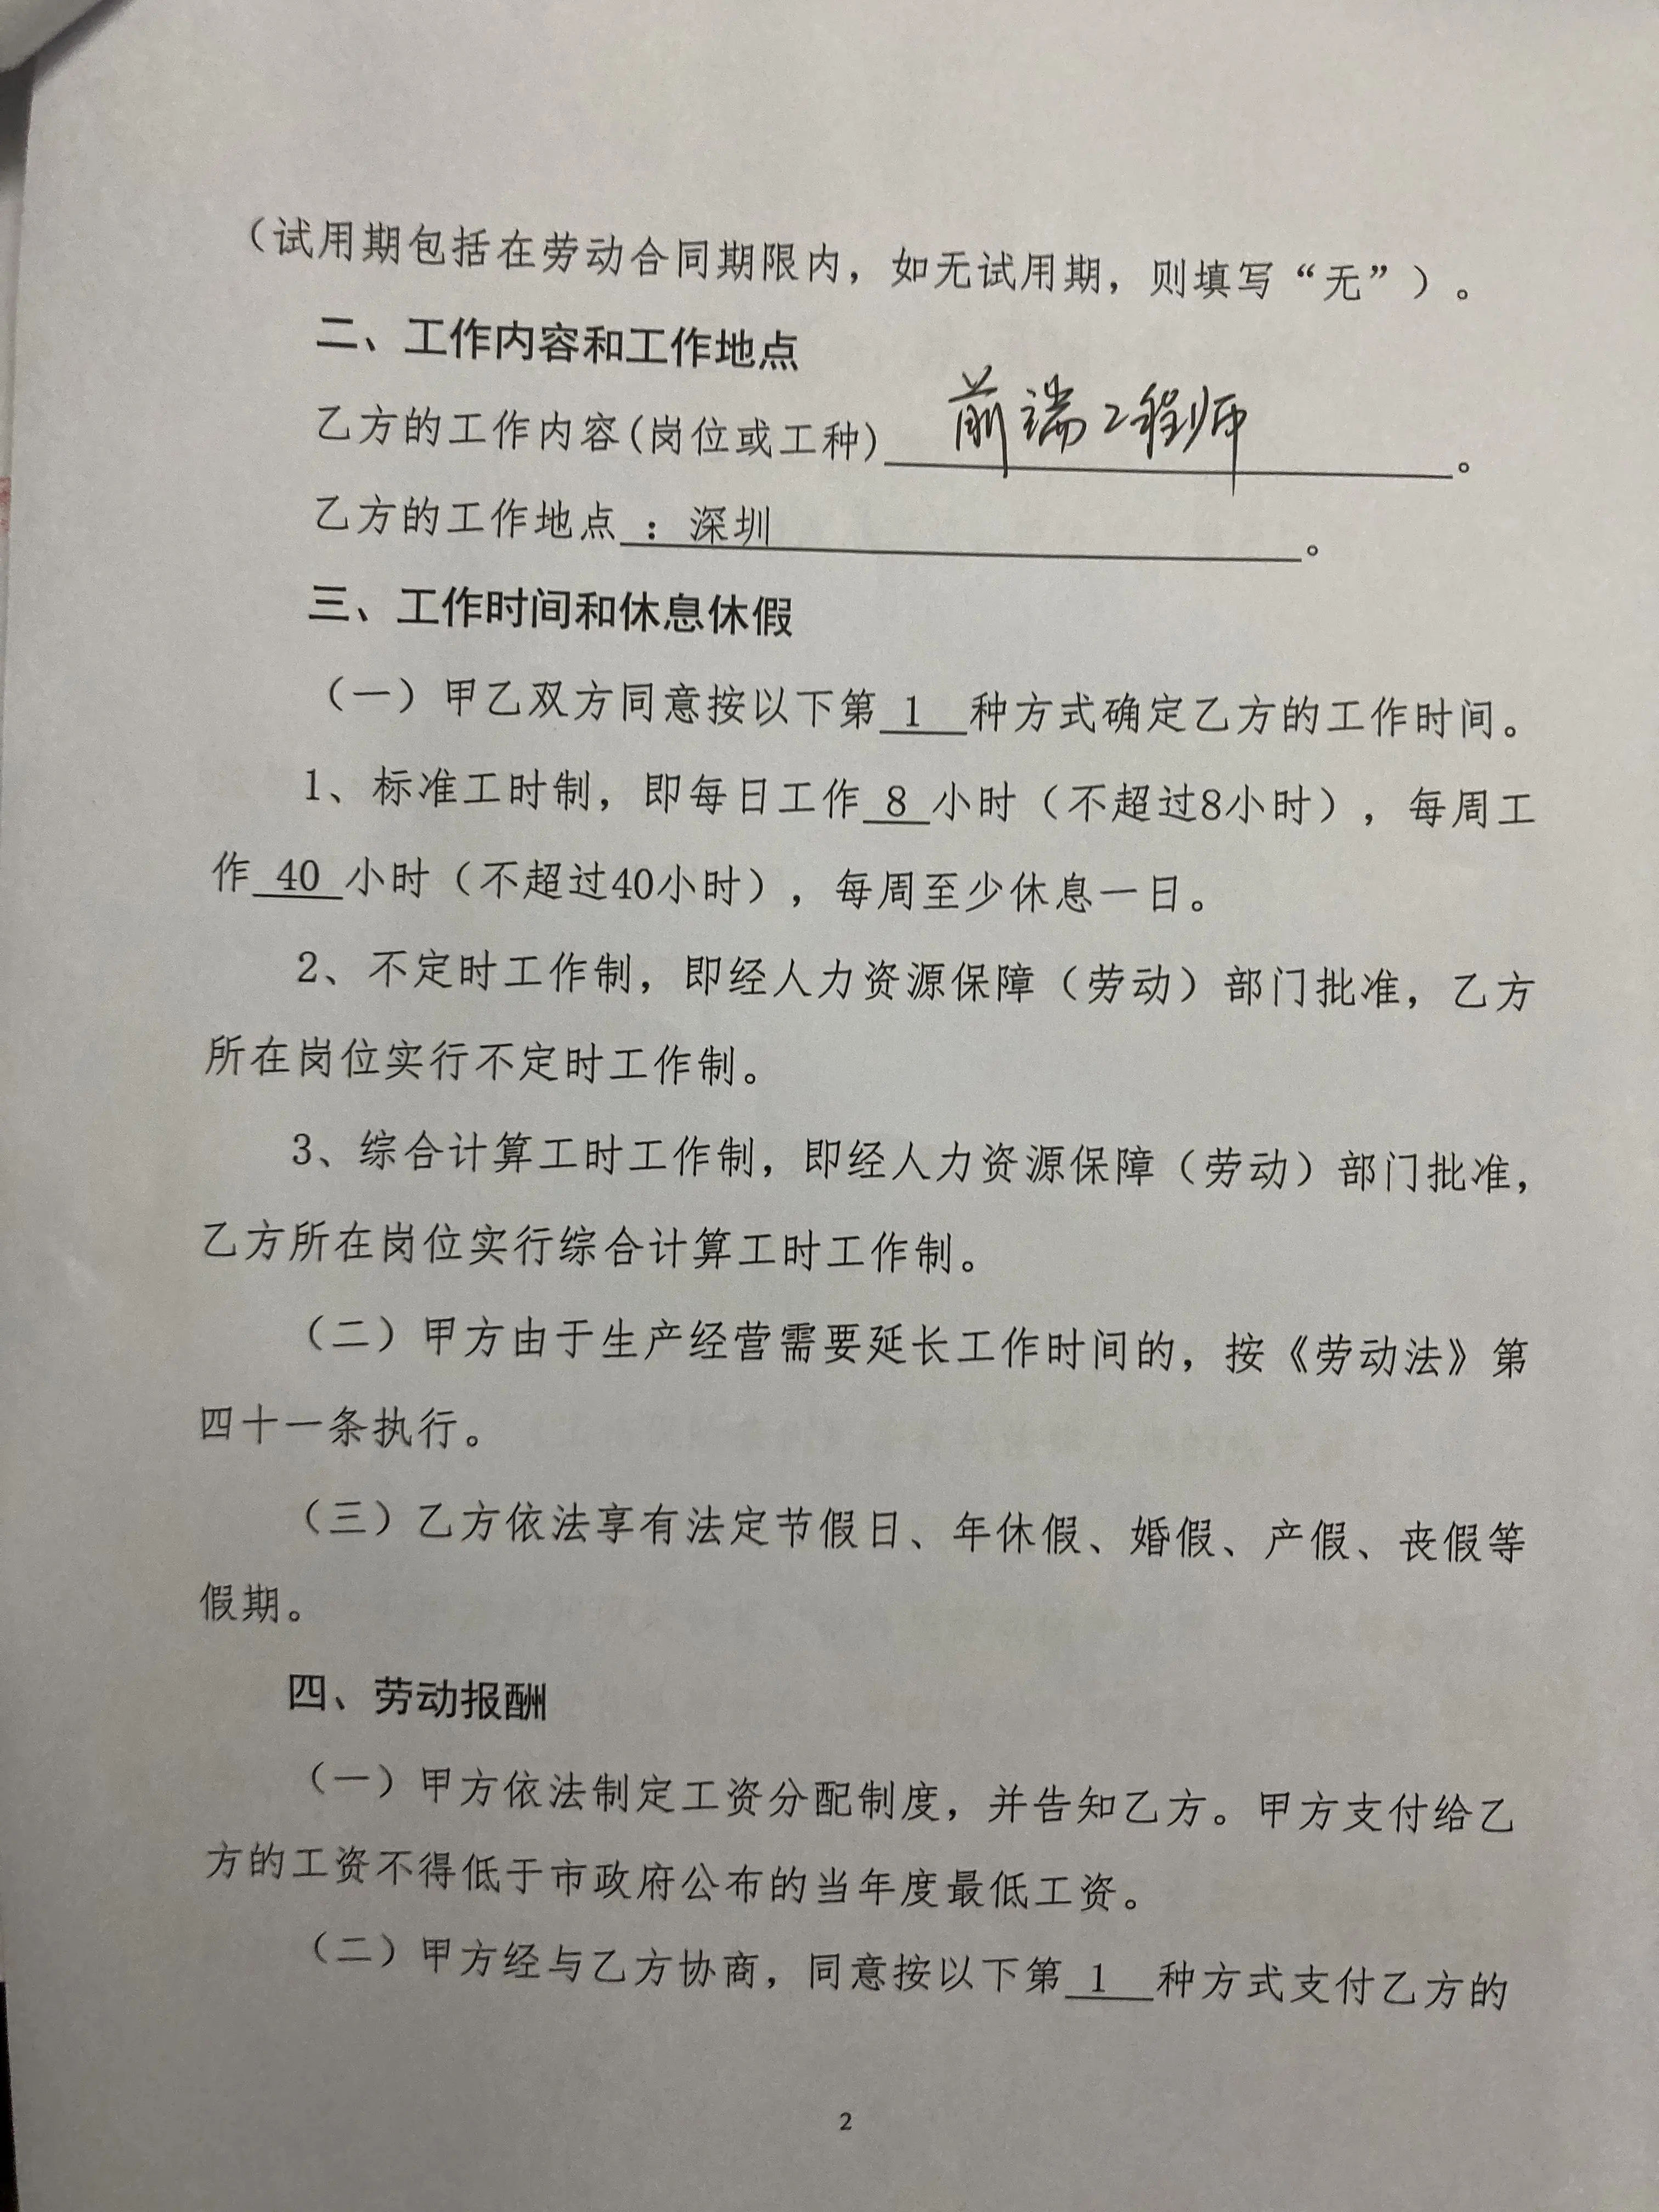 （试用期包括在劳动合同期限内，如无试用期，则填写“无”）。
二、工作内容和工作地点
乙方的工作内容(岗位或工种) 前端工程师。
乙方的工作地点 ：深圳。
三、工作时间和休息休假
（一）甲乙双方同意按以下第 1 种方式确定乙方的工作时间。
1、标准工时制，即每日工作 8 小时（不超过8小时），每周工
作 40 小时（不超过40小时），每周至少休息一日。
2、不定时工作制，即经人力资源保障（劳动）部门批准，乙方
所在岗位实行不定时工作制。
3、综合计算工时工作制，即经人力资源保障（劳动）部门批准，
乙方所在岗位实行综合计算工时工作制。
（二）甲方由于生产经营需要延长工作时间的，按《劳动法》第
四十一条执行。
（三）乙方依法享有法定节假日、年休假、婚假、产假、丧假等
假期。
四、劳动报酬
（一）甲方依法制定工资分配制度，并告知乙方。甲方支付给乙
方的工资不得低于市政府公布的当年度最低工资。
（二）甲方经与乙方协商，同意按以下第 1 种方式支付乙方的
2